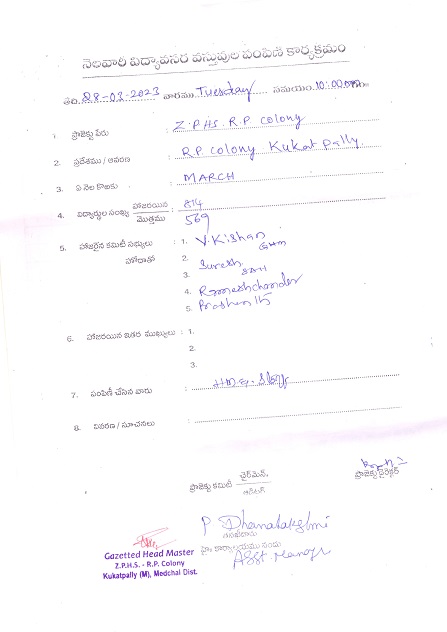 నెలవారి విద్యావసర వస్తువుల పంపిణీ కార్యక్రమం
తేది. 28-03-2023 వారము Tuesday సమయం. 10:00
1. ప్రాజెక్టు పేరు : Z.P.H.S. R.P colony
2. ప్రదేశము / ఆవరణ : R.P colony Kukat pally.
3. ఏ నెల కొఱకు : MARCH
4. విద్యార్థుల సంఖ్య హాజరయిన : 814
మొత్తము 569
5. హాజరైన కమిటీ సభ్యులు : 1. V. Kishan
హోదాతో 2. Suresh
3.
4. Rameshchander
5.
6. హాజరయిన ఇతర ముఖ్యులు : 1.
2.
3.
7. పంపిణీ చేసిన వారు :
8. వివరణ / సూచనలు :
ప్రాజెక్టు కమిటీ ఛైర్మెన్
ప్రాజెక్టు డైరెక్టర్
P Dhanalakshmi
Gazetted Head Master
Z.P.H.S. - R.P. Colony
Kukatpally (M), Medchal Dist.